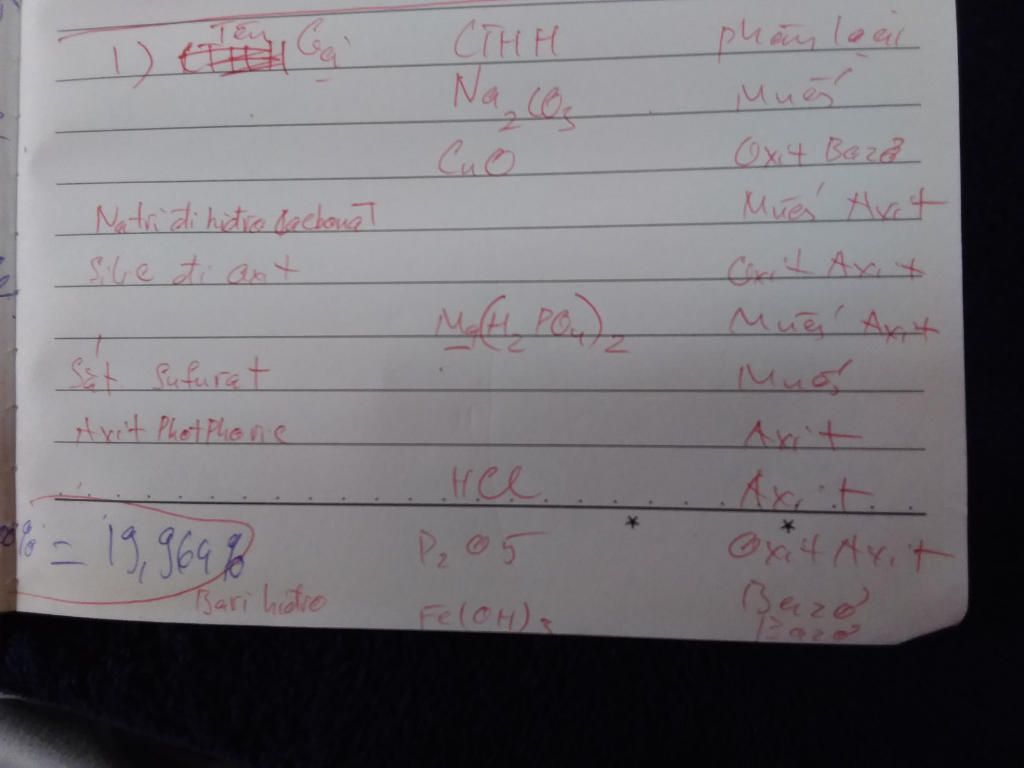 1) Tên Gọi CTHH phân loại
Na2CO3 Muối
CuO Oxit Bazơ
Natri đi hiđro cacbonat Muối Axit
Silic đi oxit Oxit Axit
Mg(H2PO4)2 Muối Axit
Sắt sufurat Muối
Axit Photphoric Axit
HCl Axit
% = 19,964% P2O5 Oxit Axit
Bari hiđro Bazơ
Fe(OH)3 Bazơ